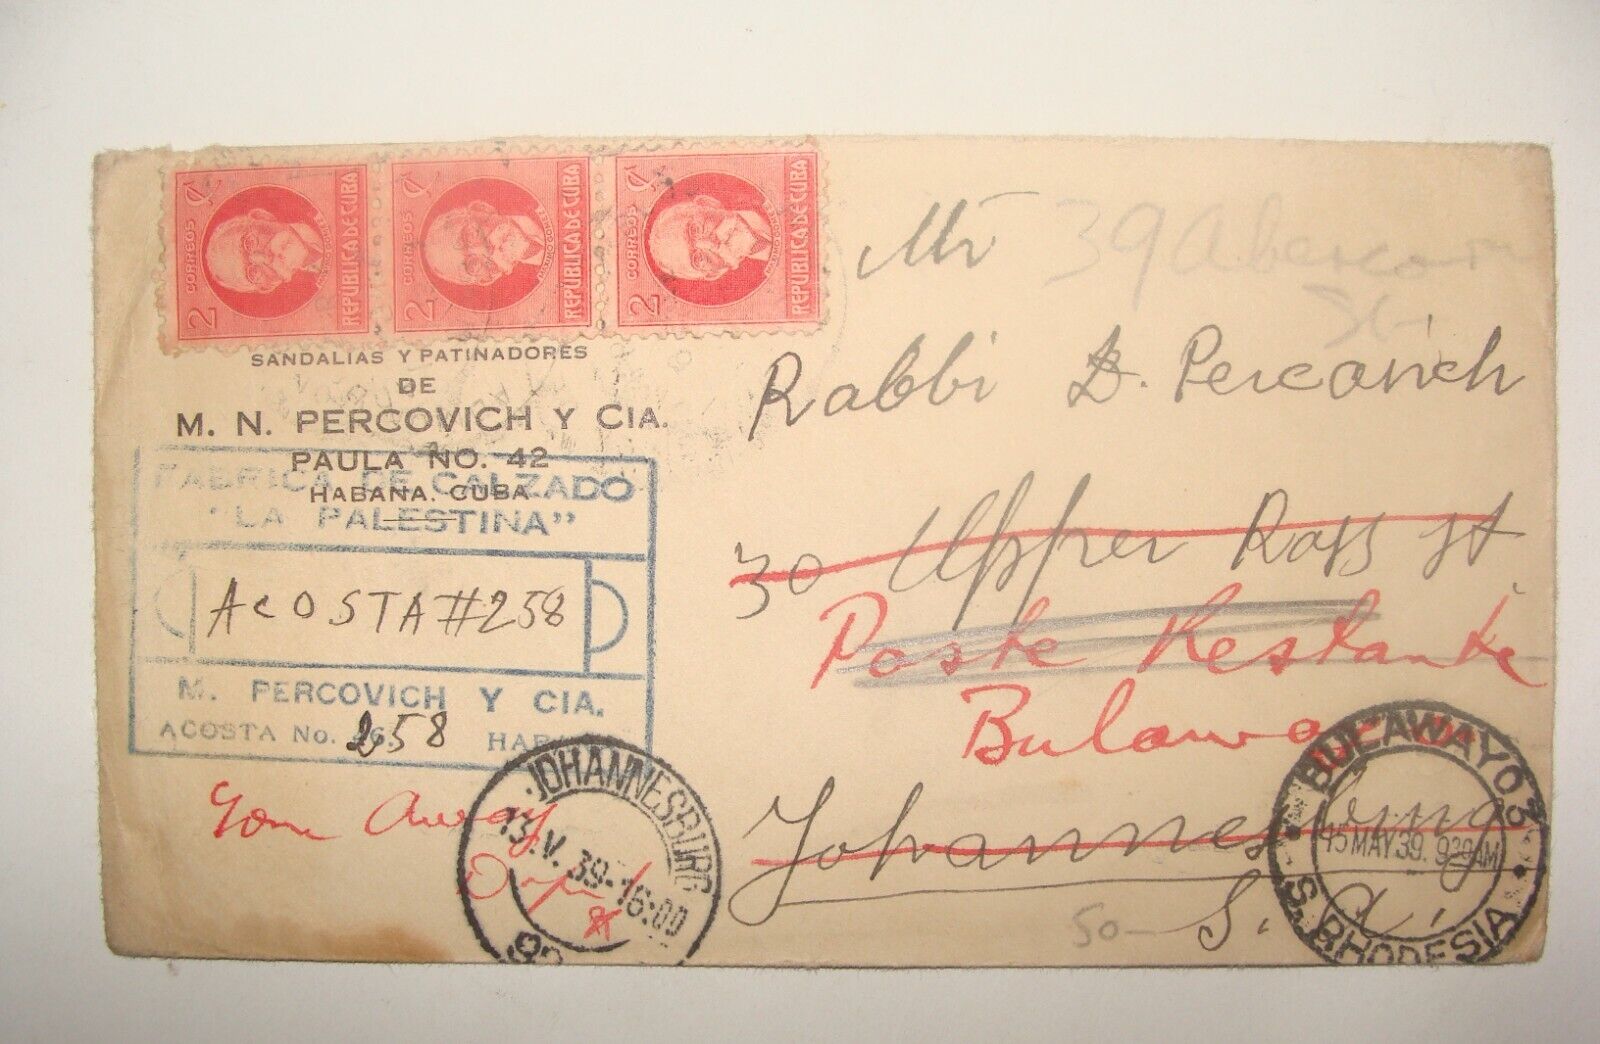 CORREOS 2 MAXIMO GOMEZ REPUBLICA DE CUBA
CORREOS 2 MAXIMO GOMEZ REPUBLICA DE CUBA
CORREOS 2 MAXIMO GOMEZ REPUBLICA DE CUBA
SANDALIAS Y PATINADORES
DE
M. N. PERCOVICH Y CIA.
PAULA NO. 42
HABANA. CUBA
FABRICA DE CALZADO
"LA PALESTINA"
ACOSTA #258
M. PERCOVICH Y CIA.
ACOSTA No. 258
Mr 39 Abercorn
St
Rabbi D. Percovich
30 Upper Ross st
Poste Restante
Bulawayo
Johannesburg
S. A.
50-
Gone Away
JOHANNESBURG
13.V.39-16:00
BULAWAYO 3
15 MAY 39. 9 30 AM
S. RHODESIA